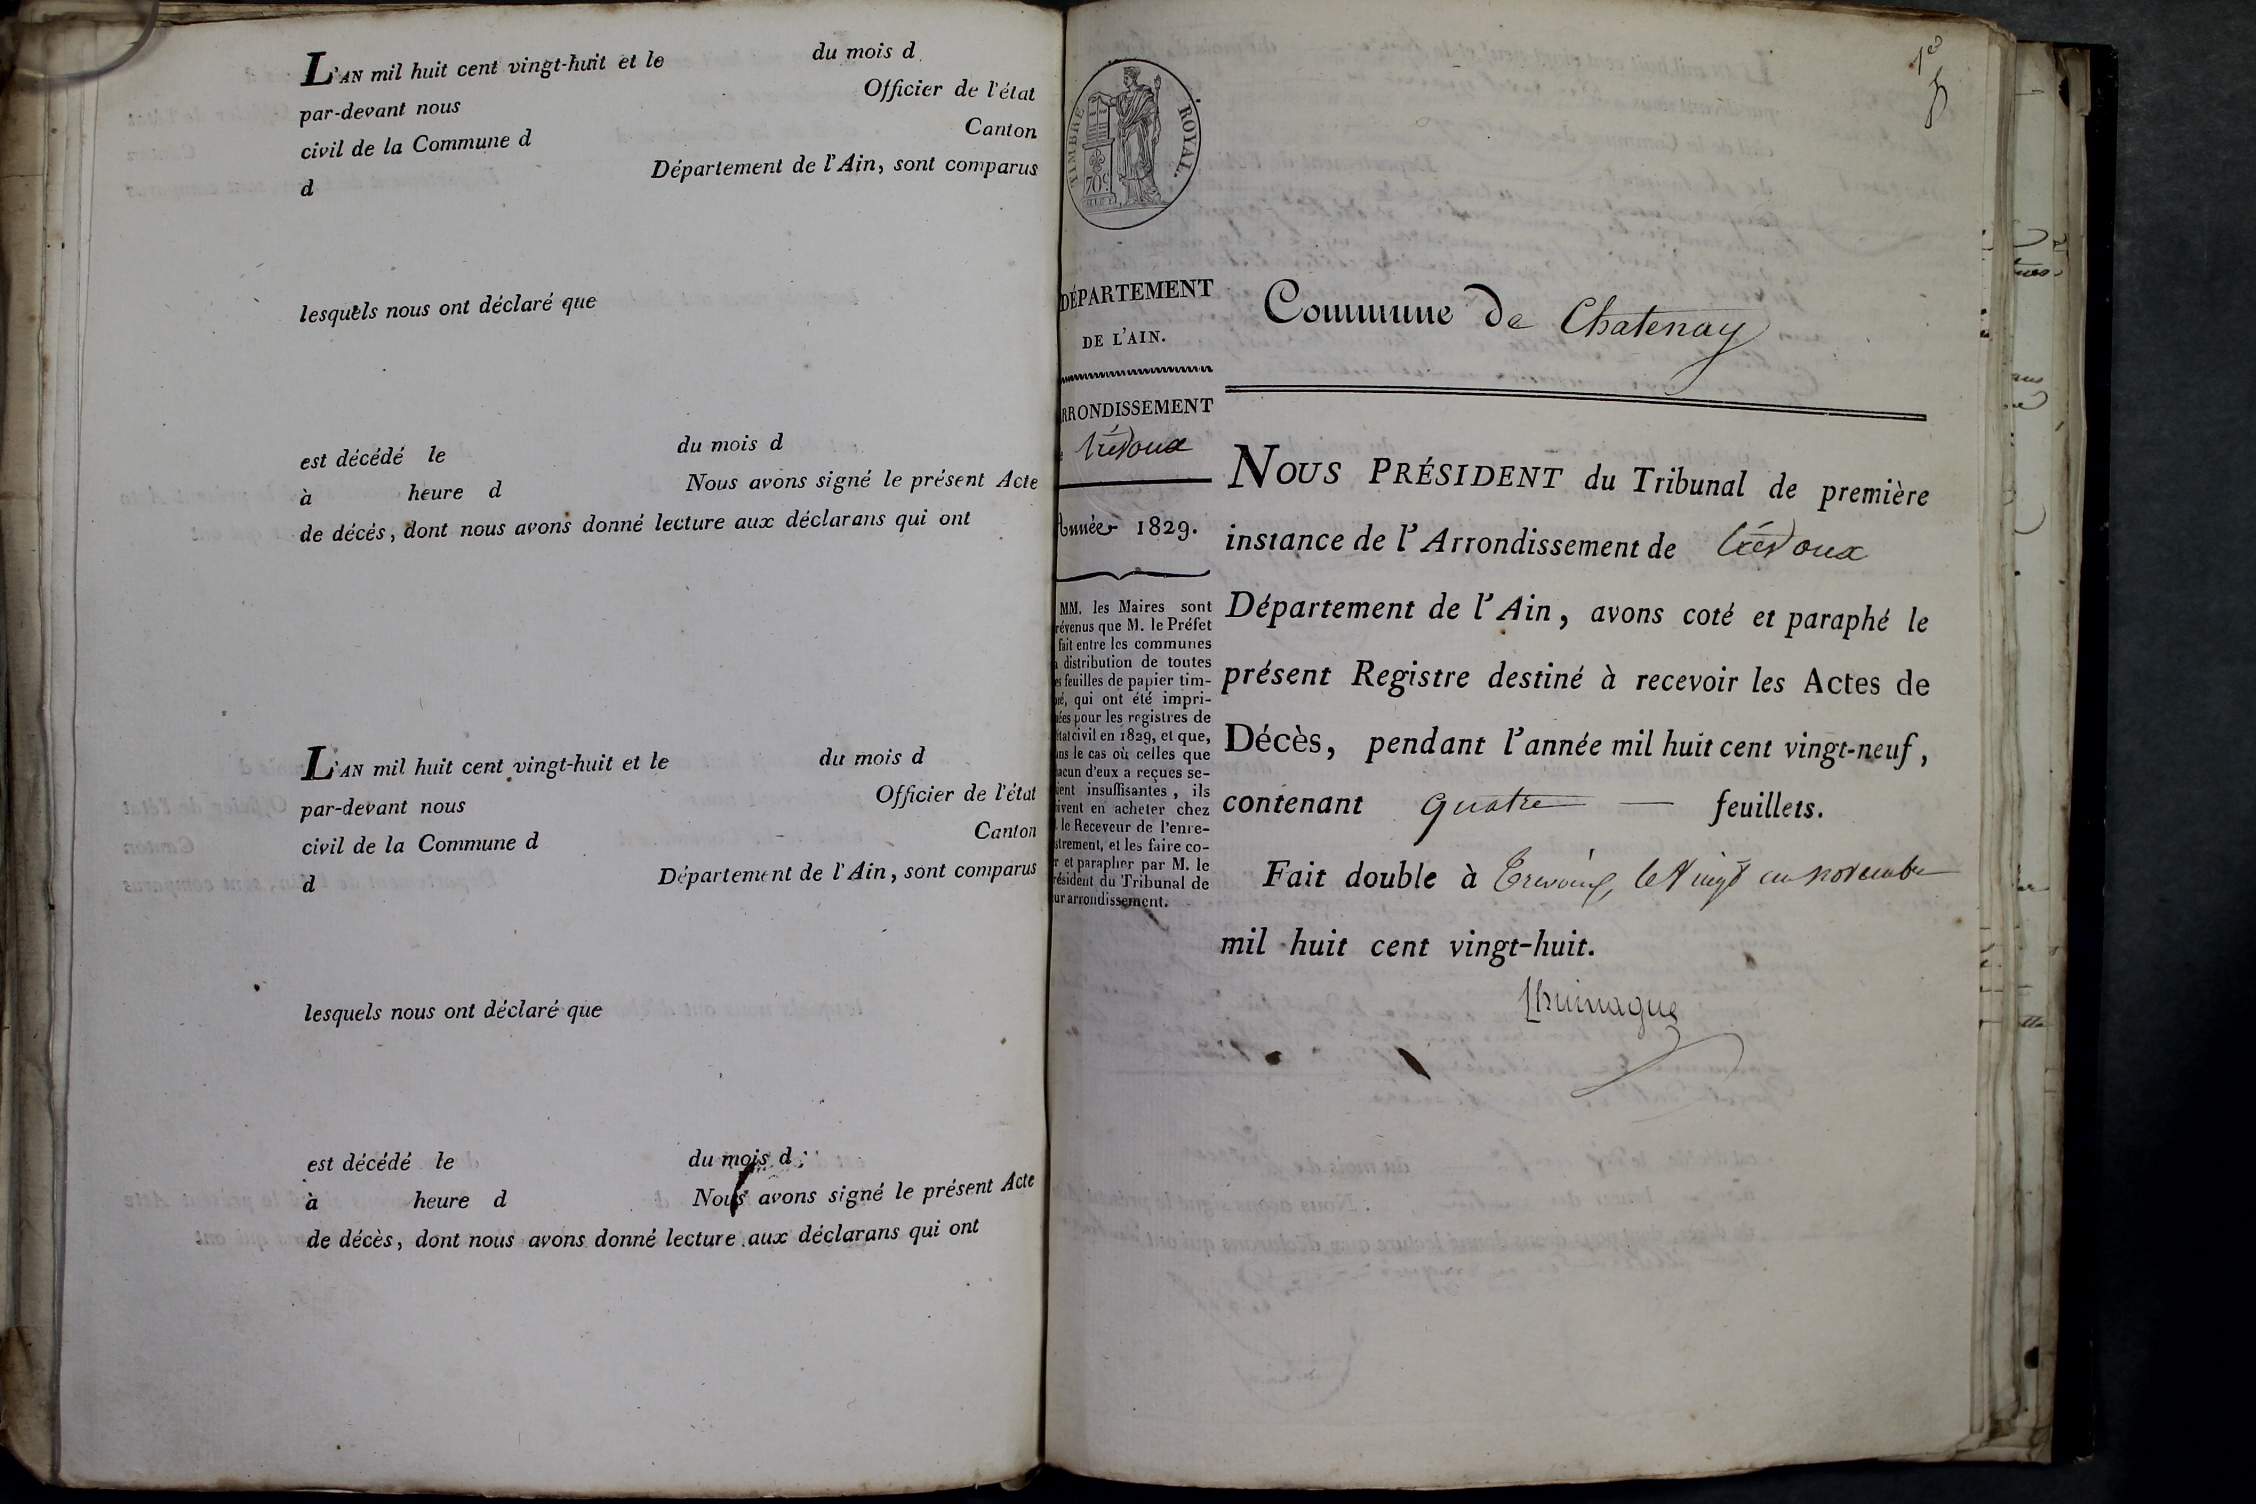 L'AN mil huit cent vingt-huit et le du mois d
par-devant nous Officier de l'état
civil de la Commune d Canton
d Département de l'Ain, sont comparus
lesquels nous ont déclaré que
est décédé le du mois d
à heure d Nous avons signé le présent Acte
de décès, dont nous avons donné lecture aux déclarans qui ont
L'AN mil huit cent vingt-huit et le du mois d
par-devant nous Officier de l'état
civil de la Commune d Canton
d Département de l'Ain, sont comparus
lesquels nous ont déclaré que
est décédé le du mois d
à heure d Nous avons signé le présent Acte
de décès, dont nous avons donné lecture aux déclarans qui ont
1er
TIMBRE ROYAL.
70c.
DÉPARTEMENT
DE L'AIN.
ARRONDISSEMENT
Trévoux
Année 1829.
MM. les Maires sont
révenus que M. le Préfet
fait entre les communes
distribution de toutes
feuilles de papier tim-
qui ont été impri-
ées pour les registres de
état civil en 1829, et que,
ans le cas où celles que
acun d'eux a reçues se-
ient insuffisantes, ils
ivent en acheter chez
le Receveur de l'enre-
istrement, et les faire co-
r et parapher par M. le
résident du Tribunal de
ur arrondissement.
Commune de Chatenay
NOUS PRÉSIDENT du Tribunal de première
instance de l'Arrondissement de Trévoux
Département de l'Ain, avons coté et paraphé le
présent Registre destiné à recevoir les Actes de
Décès, pendant l'année mil huit cent vingt-neuf,
contenant quatre — feuillets.
Fait double à Trévoux, le vingt un novembre
mil huit cent vingt-huit.